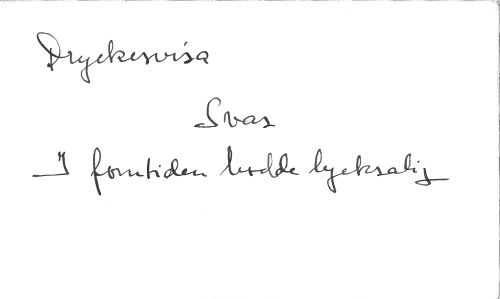 Dryckesvisa
Svar
I forntiden bodde lycksalig